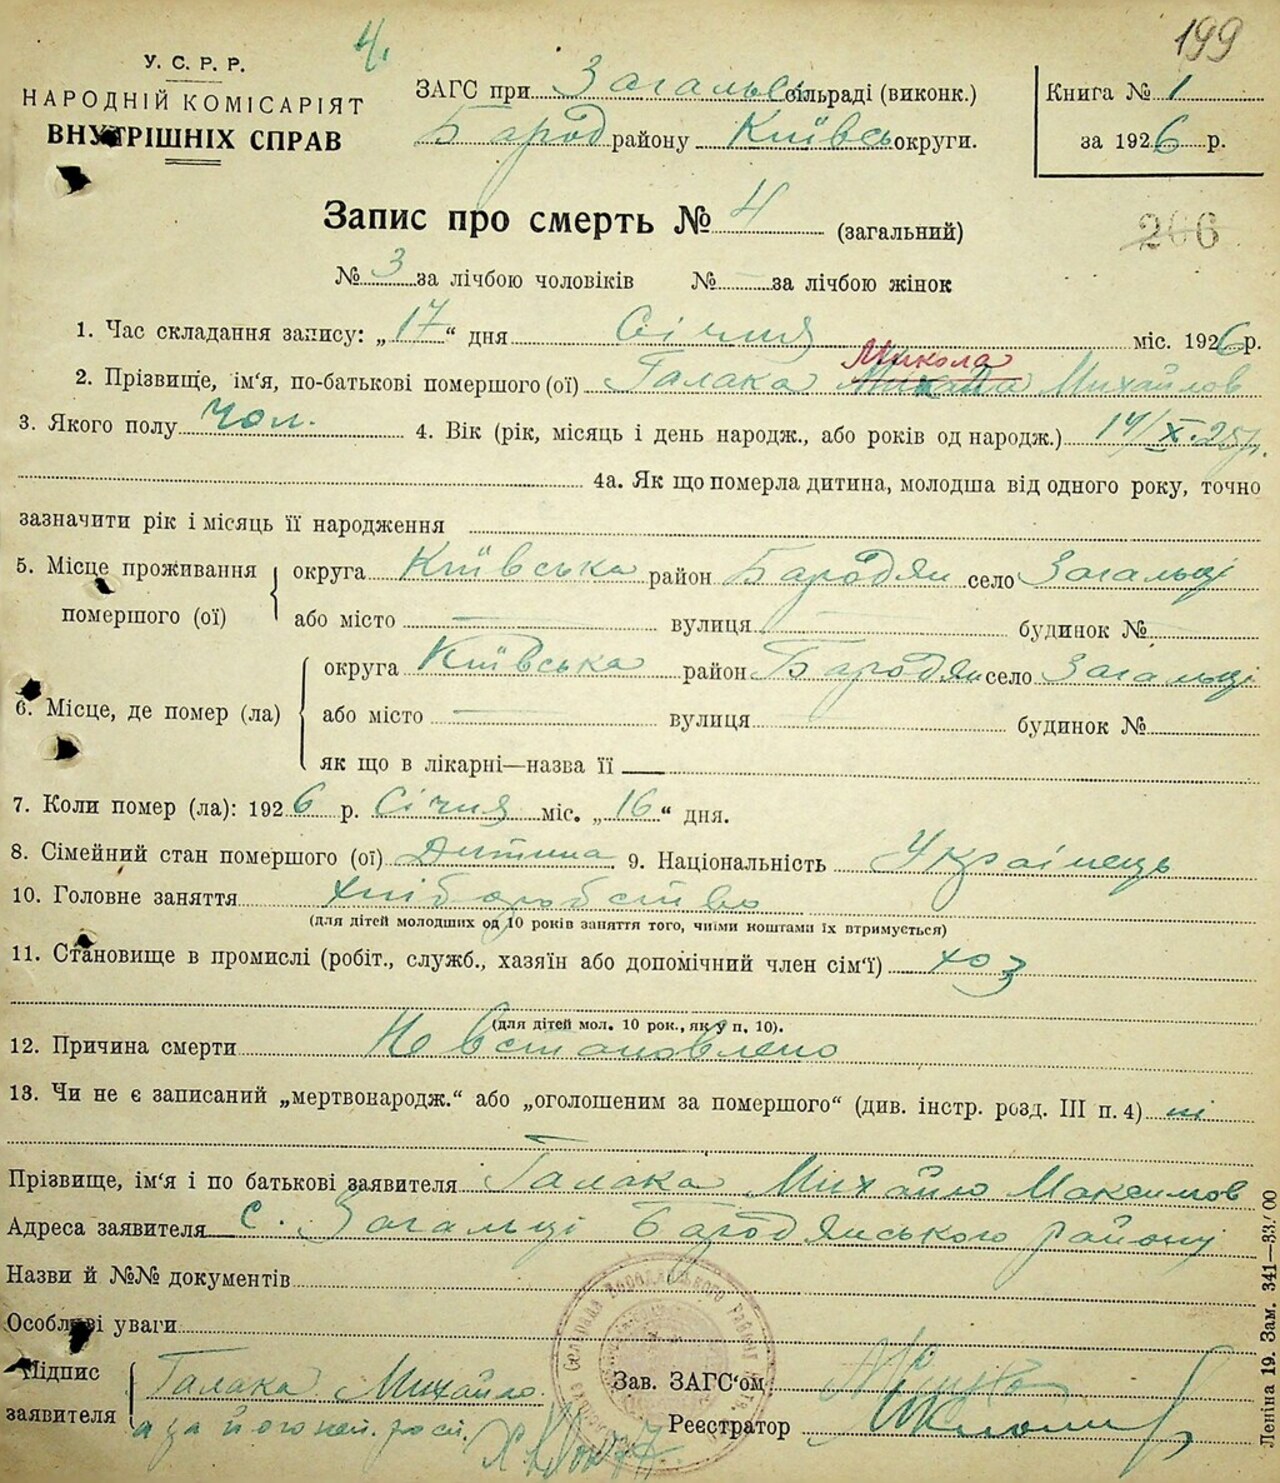 4.
199
У. С. Р. Р.
НАРОДНІЙ КОМІСАРІЯТ
ВНУТРІШНІХ СПРАВ
ЗАГС при Загальс сільраді (виконк.)
Барод району Київсь округи.
Книга № 1
за 1926 р.
Запис про смерть № 4 (загальний)
206
№ 3 за лічбою чоловіків № — за лічбою жінок
1. Час складання запису: „17“ дня Січня міс. 1926 р.
Микола
2. Прізвище, ім'я, по-батькові помершого (ої) Галака Михайла Михайлов
3. Якого полу Чол. 4. Вік (рік, місяць і день народж., або років од народж.) 14/X.25р.
4а. Як що померла дитина, молодша від одного року, точно
зазначити рік і місяць її народження
5. Місце проживання помершого (ої) округа Київська район Бародян село Загальці
або місто — вулиця — будинок №
6. Місце, де помер (ла) округа Київська район Бародян село Загальці
або місто — вулиця будинок №
як що в лікарні—назва її —
7. Коли помер (ла): 1926 р. Січня міс. „16“ дня.
8. Сімейний стан помершого (ої) Дитина 9. Національність Українець
10. Головне заняття хліборобство
(для дітей молодших од 10 років заняття того, чиїми коштами їх втримується)
11. Становище в промислі (робіт., служб., хазяїн або допомічний член сім'ї) хоз
(для дітей мол. 10 рок., як у п. 10).
12. Причина смерти Не встановлено
13. Чи не є записаний „мертвонародж.“ або „оголошеним за помершого“ (див. інстр. розд. III п. 4) ні
Прізвище, ім'я і по батькові заявителя Галака Михайло Максимов
Адреса заявителя с. Загальці Бародянського району
Назви й №№ документів
Особливі уваги
Підпис заявителя Галака Михайло
а за його неп. росп.
Зав. ЗАГС'ом
Реєстратор
Леніна 19. Зам. 341—33/00